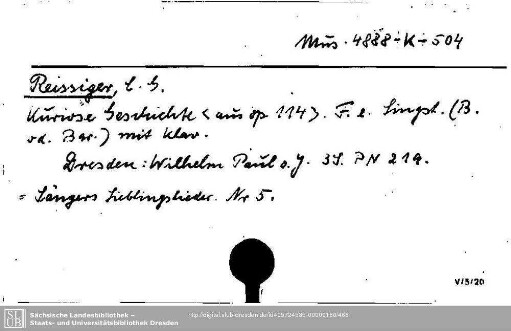 Mus. 4888-K-504
Reissiger, C. G.
Kuriose Geschichte <aus op 114>. F. e. Singst. (B.
od. Bar.) mit Klav.
Dresden: Wilhelm Paul o. J. 3 S. PN 219.
= Sängers Lieblingslieder. Nr 5.
V/5/20
SLUB
Sächsische Landesbibliothek –
Staats- und Universitätsbibliothek Dresden